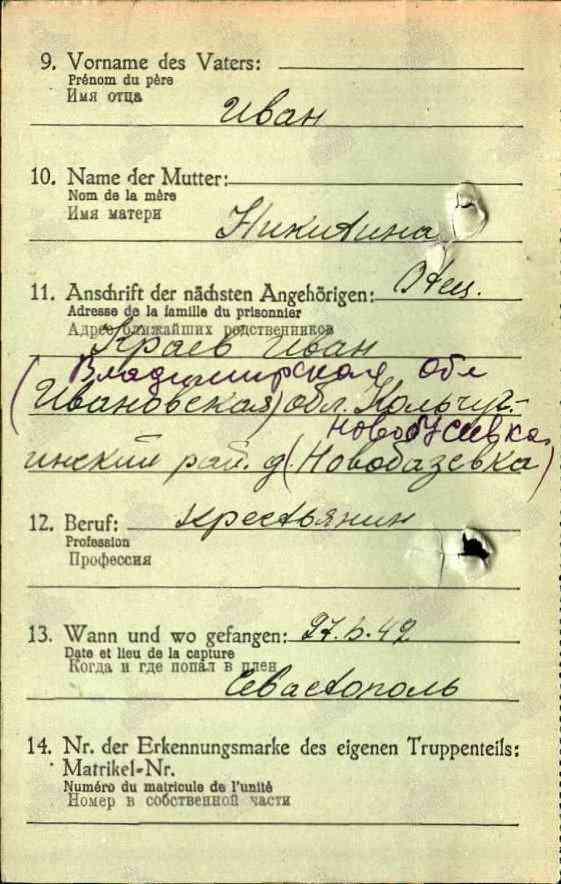 9. Vorname des Vaters:
Prénom du père
Имя отца
Иван
10. Name der Mutter:
Nom de la mère
Имя матери
Никитина
11. Anschrift der nächsten Angehörigen: Отец.
Adresse de la famille du prisonnier
Адрес ближайших родственников
Краев Иван
Владимирская обл
(Ивановская) обл. Кольчуг-
Новобусевка
инский рай. д. (Новобазевка)
12. Beruf: крестьянин
Profession
Профессия
13. Wann und wo gefangen:
Date et lieu de la capture
Когда и где попал в плен
Севастополь
14. Nr. der Erkennungsmarke des eigenen Truppenteils:
Matrikel-Nr.
Numéro du matricule de l'unité
Номер в собственной части